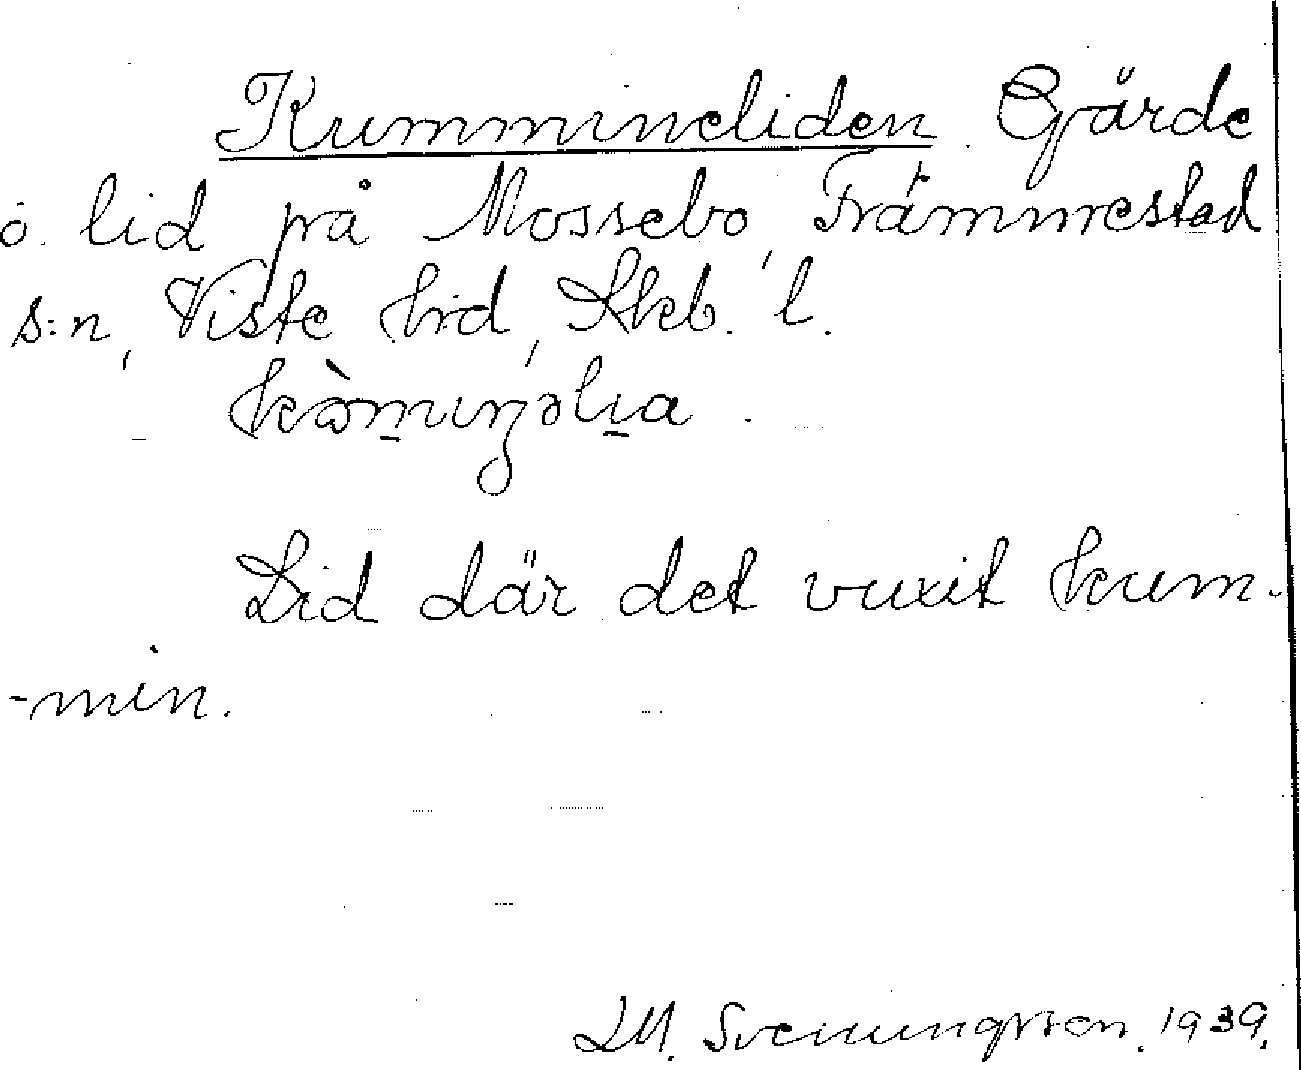 Kummineliden Gärde
o. lid på Mossebo, Främmestad
s:n, Viste hrd, Skb. l.
Lid där det vuxit kum-
-min.
LM. Svenungsson. 1939.